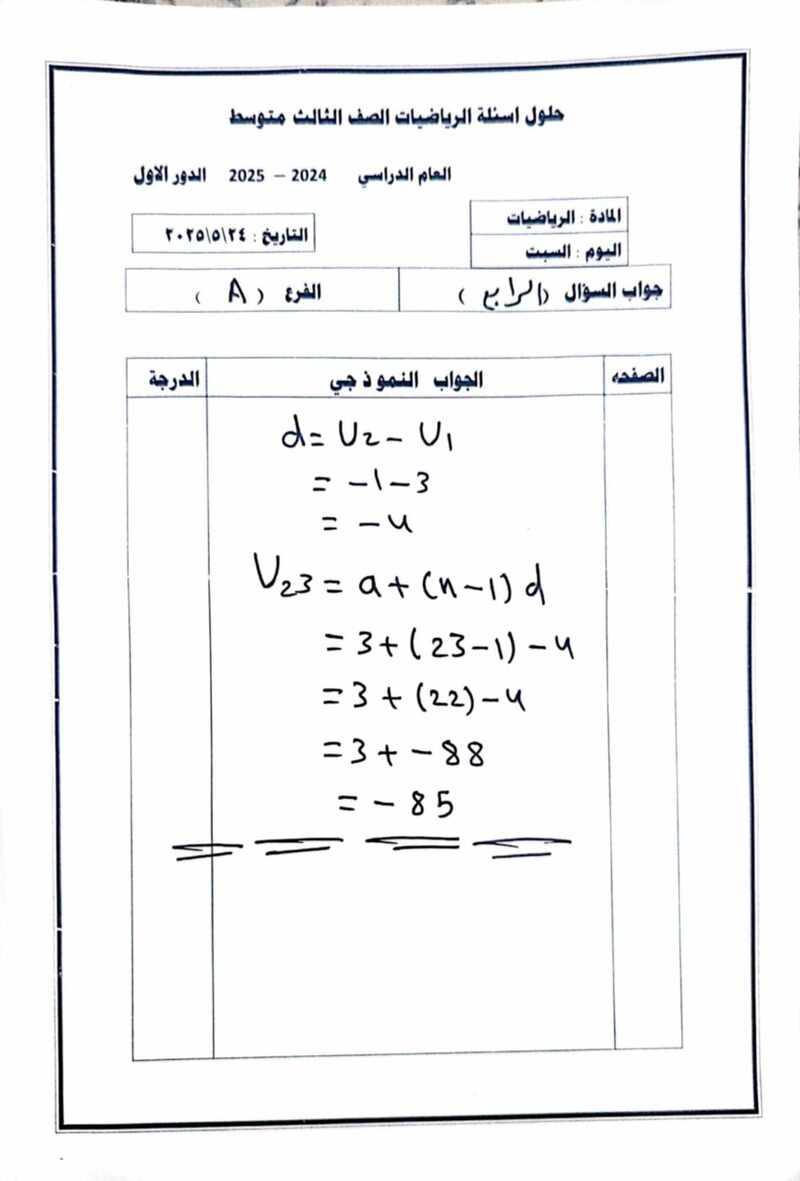 حلول اسئلة الرياضيات الصف الثالث متوسط
العام الدراسي 2024 – 2025 الدور الاول
المادة : الرياضيات
اليوم : السبت
التاريخ : ٢٠٢٥\٥\٢٤
جواب السؤال (الرابع) الفرع ( A )
الصفحه الجواب النموذجي الدرجة
d = U2 - U1
= -1 - 3
= -4
U23 = a + (n-1) d
= 3 + (23-1) -4
= 3 + (22) -4
= 3 + -88
= -85